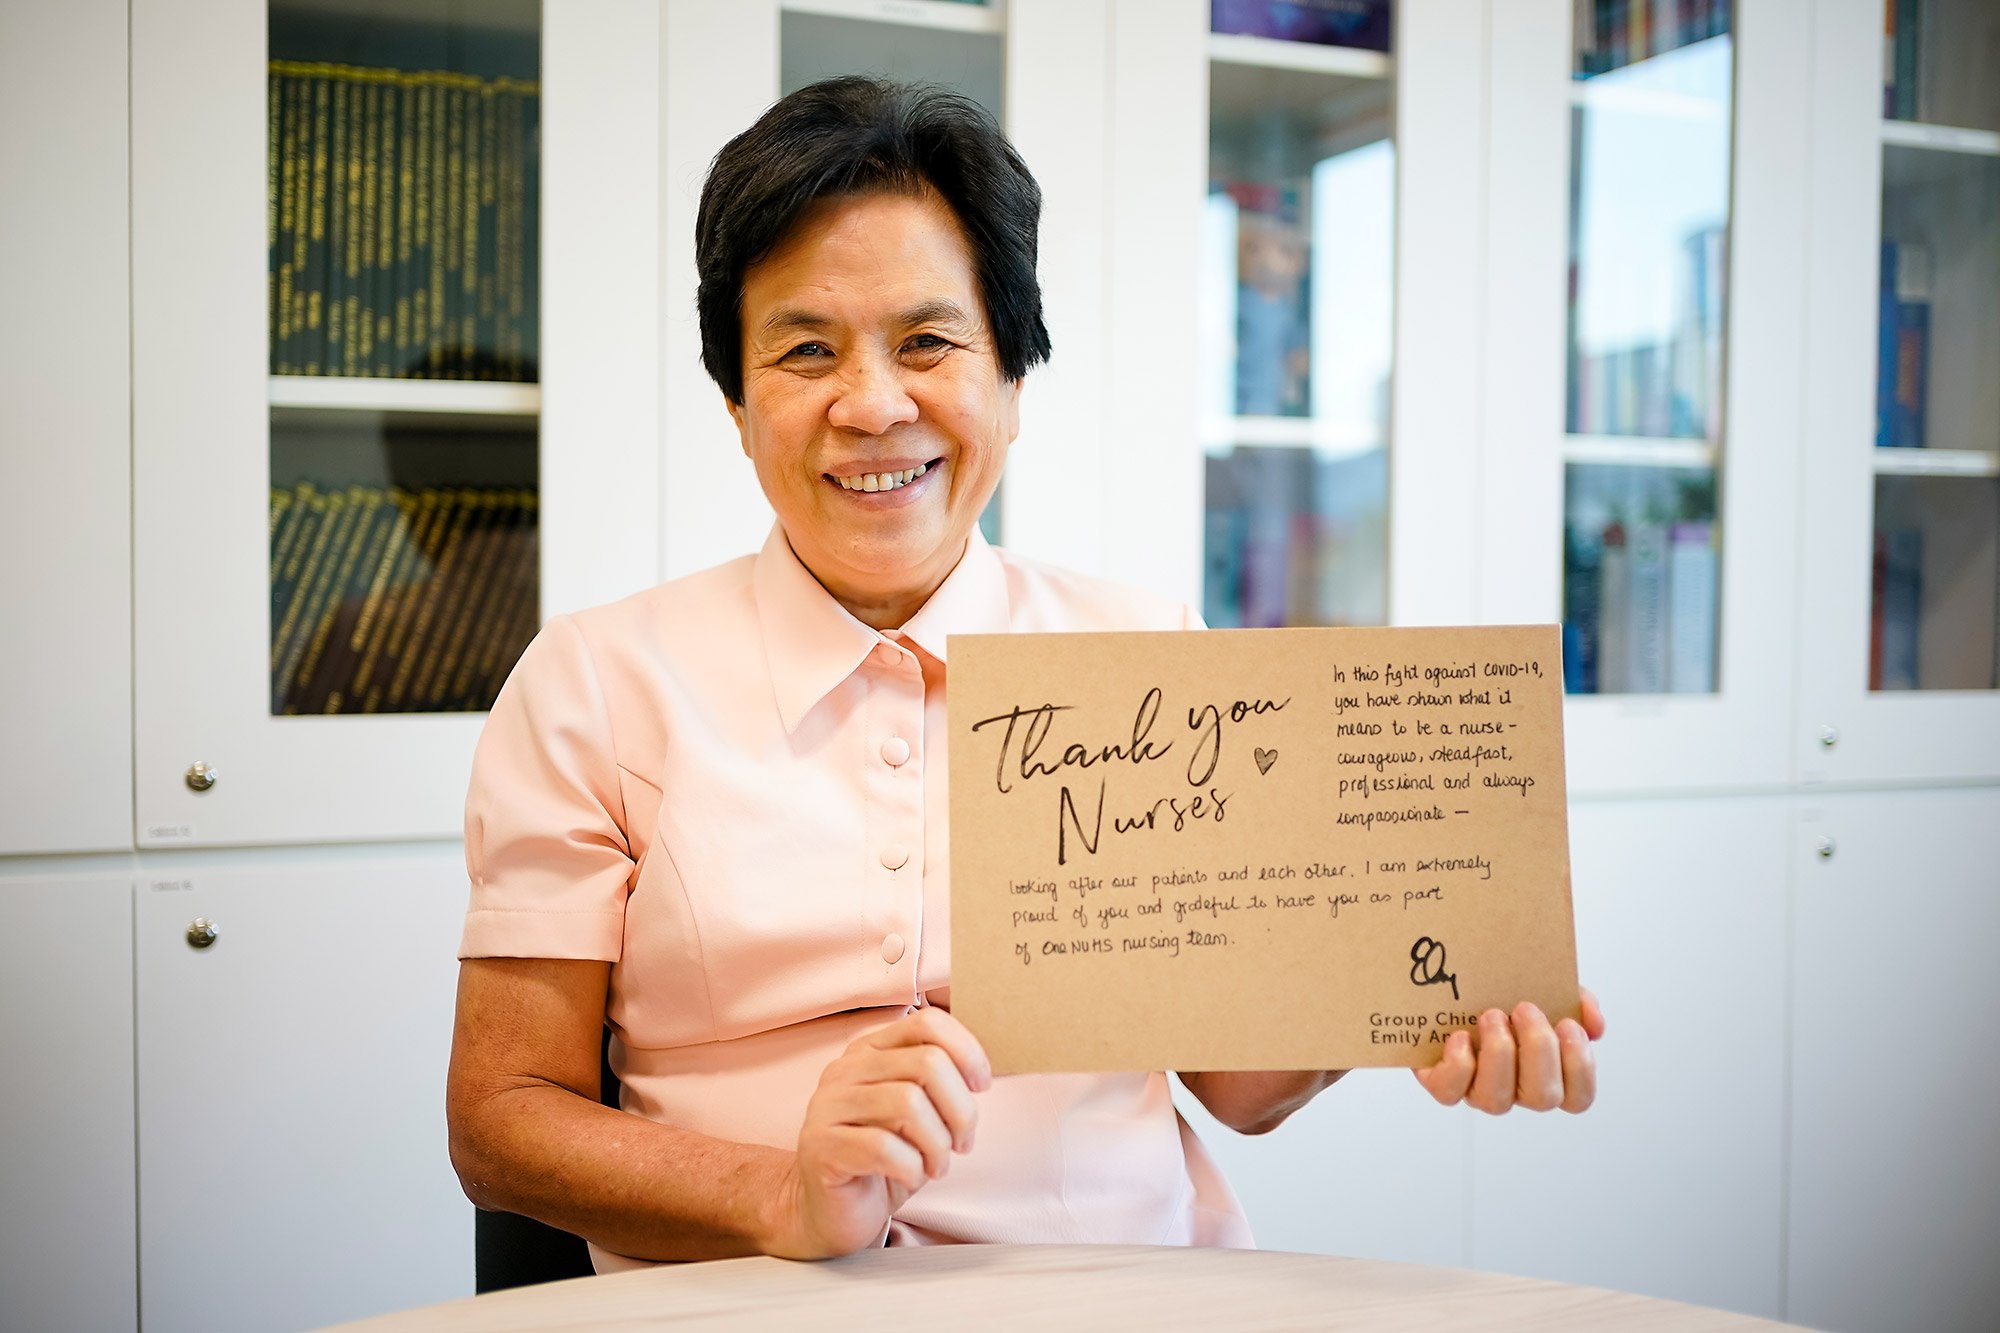 Thank you
Nurses
In this fight against COVID-19,
you have shown what it
means to be a nurse -
courageous, steadfast,
professional and always
compassionate —
looking after our patients and each other. I am extremely
proud of you and grateful to have you as part
of One NUHS nursing team.
Group Chie
Emily An